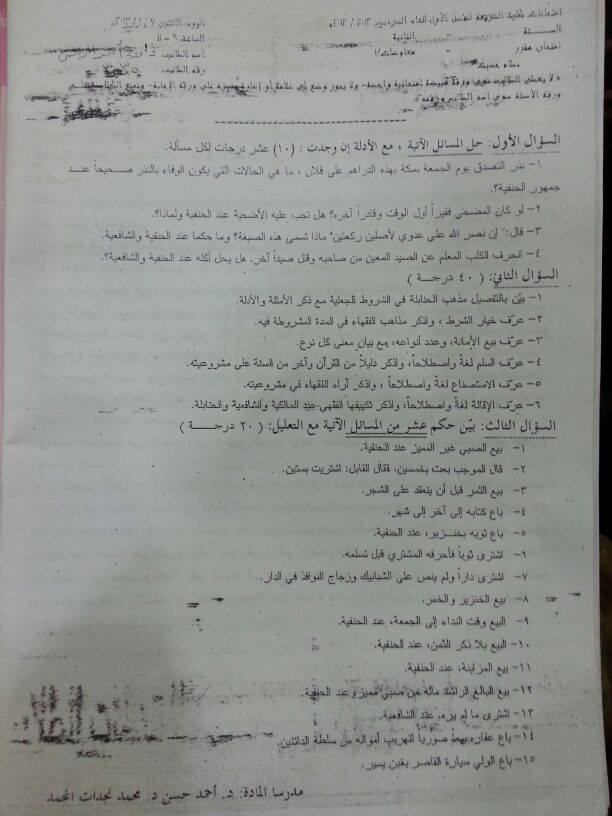 امتحانات كلية الشريعة للفصل الأول للعام الدراسي ٢٠١٢ / ٢٠١٣م
السنة الثانية
الساعة: ٩ - ١١
امتحان مقرر معاملات
اسم الطالب:
نظام حديث
رقم الطالب:
" لا يعطى الطالب سوى ورقة امتحانية واحدة- ولا يجوز وضع أي علامة أو إشارة على ورقة الإجابة-
ورقة الأسئلة سوى اسم الطالب ورقمه
السؤال الأول: حل المسائل الآتية ، مع الأدلة إن وجدت : (١٠) عشر درجات لكل مسألة.
١- نذر التصدق يوم الجمعة بمكة بهذه الدراهم على فلان ، ما هي الحالات التي يكون الوفاء بالنذر صحيحاً عند
جمهور الحنفية؟.
٢- لو كان المضحي فقيراً أول الوقت وقادراً آخره؟ هل تجب عليه الأضحية عند الحنفية ولماذا؟.
٣- قال:" إن نصر الله علي عدوي لأصلين ركعتين" ماذا تسمى هذه الصيغة؟ وما حكما عند الحنفية والشافعية.
٤- انحرف الكلب المعلم عن الصيد المعين من صاحبه وقتل صيداً آخر. هل يحل أكله عند الحنفية والشافعية؟.
السؤال الثاني: ( ٤٠ درجـــة )
١- بيّن بالتفصيل مذهب الحنابلة في الشروط الجعلية مع ذكر الأمثلة والأدلة.
٢- عرّف خيار الشرط ، واذكر مذاهب الفقهاء في المدة المشروطة فيه.
٣- عرّف بيع الأمانة، وعدد أنواعه، مع بيان معنى كل نوع.
٤- عرّف السلم لغةً واصطلاحاً، واذكر دليلاً من القرآن وآخر من السنة على مشروعيته.
٥- عرّف الاستصناع لغةً واصطلاحاً ، واذكر آراء الفقهاء في مشروعيته.
٦- عرّف الإقالة لغةً واصطلاحاً، واذكر تكييفها الفقهي عند المالكية والشافعية والحنابلة.
السؤال الثالث: بيّن حكم عشر من المسائل الآتية مع التعليل: ( ٢٠ درجـــة )
١- بيع الصبي غير المميز عند الحنفية.
٢- قال الموجب بعت بخمسين، فقال القابل: اشتريت بستين.
٣- بيع الثمر قبل أن ينعقد على الشجر.
٤- باع كتابه إلى آخر إلى شهر.
٥- باع ثوبه بخنزير، عند الحنفية.
٦- اشترى ثوباً فأحرقه المشتري قبل تسلمه.
٧- اشترى داراً ولم ينص على الشبابيك وزجاج النوافذ في الدار.
٨- بيع الخنزير والخمر.
٩- البيع وقت النداء إلى الجمعة، عند الحنفية.
١٠- البيع بلا ذكر الثمن، عند الحنفية.
١١- بيع المزابنة، عند الحنفية.
١٢- بيع البالغ الراشد ماله من صبي مميز، عند الحنفية.
١٣- اشترى ما لم يره، عند الشافعية.
١٤- باع عقاره بيعاً صورياً لتهريب أمواله من سلطة الدائنين.
١٥- باع الولي سيارة القاصر بغبن يسير.
مدرسا المادة: د. أحمد حسن د. محمد نجدات المحمد